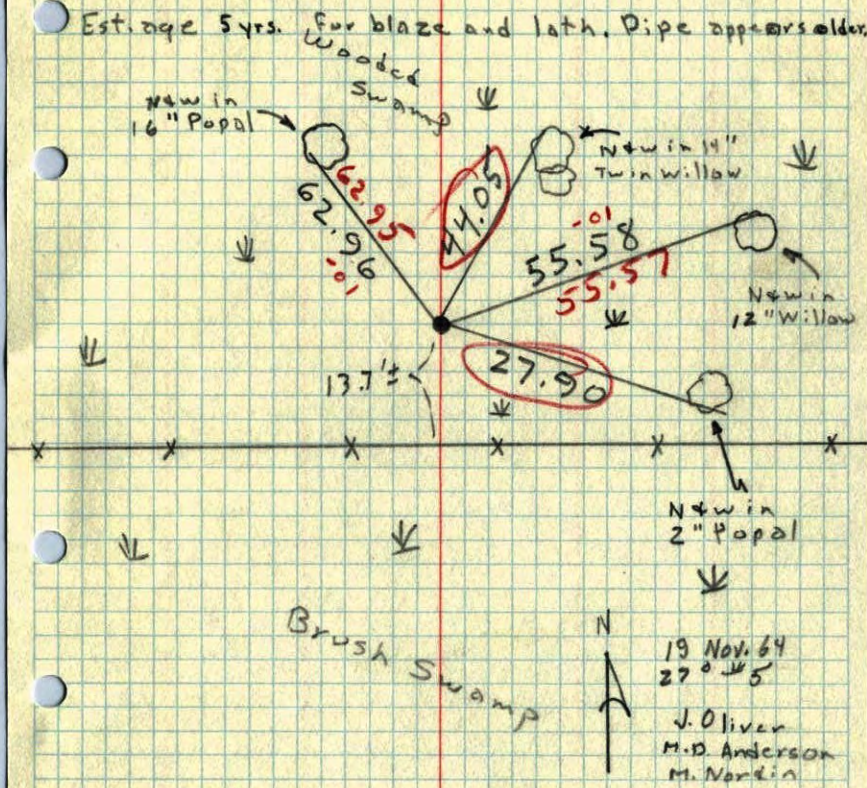 Est. age 5 yrs. for blaze and lath. Pipe appears older.
Wooded
Swamp
N&W in
16" Popal
N&W in 14"
Twin Willow
62.95
62.96
-01
44.05
-01
55.58
55.57
N&W in
12" Willow
27.90
13.7'±
N&W in
2" Popal
Brush Swamp
N
19 Nov. 64
27° #5
J. Oliver
M.D Anderson
M. Nordin